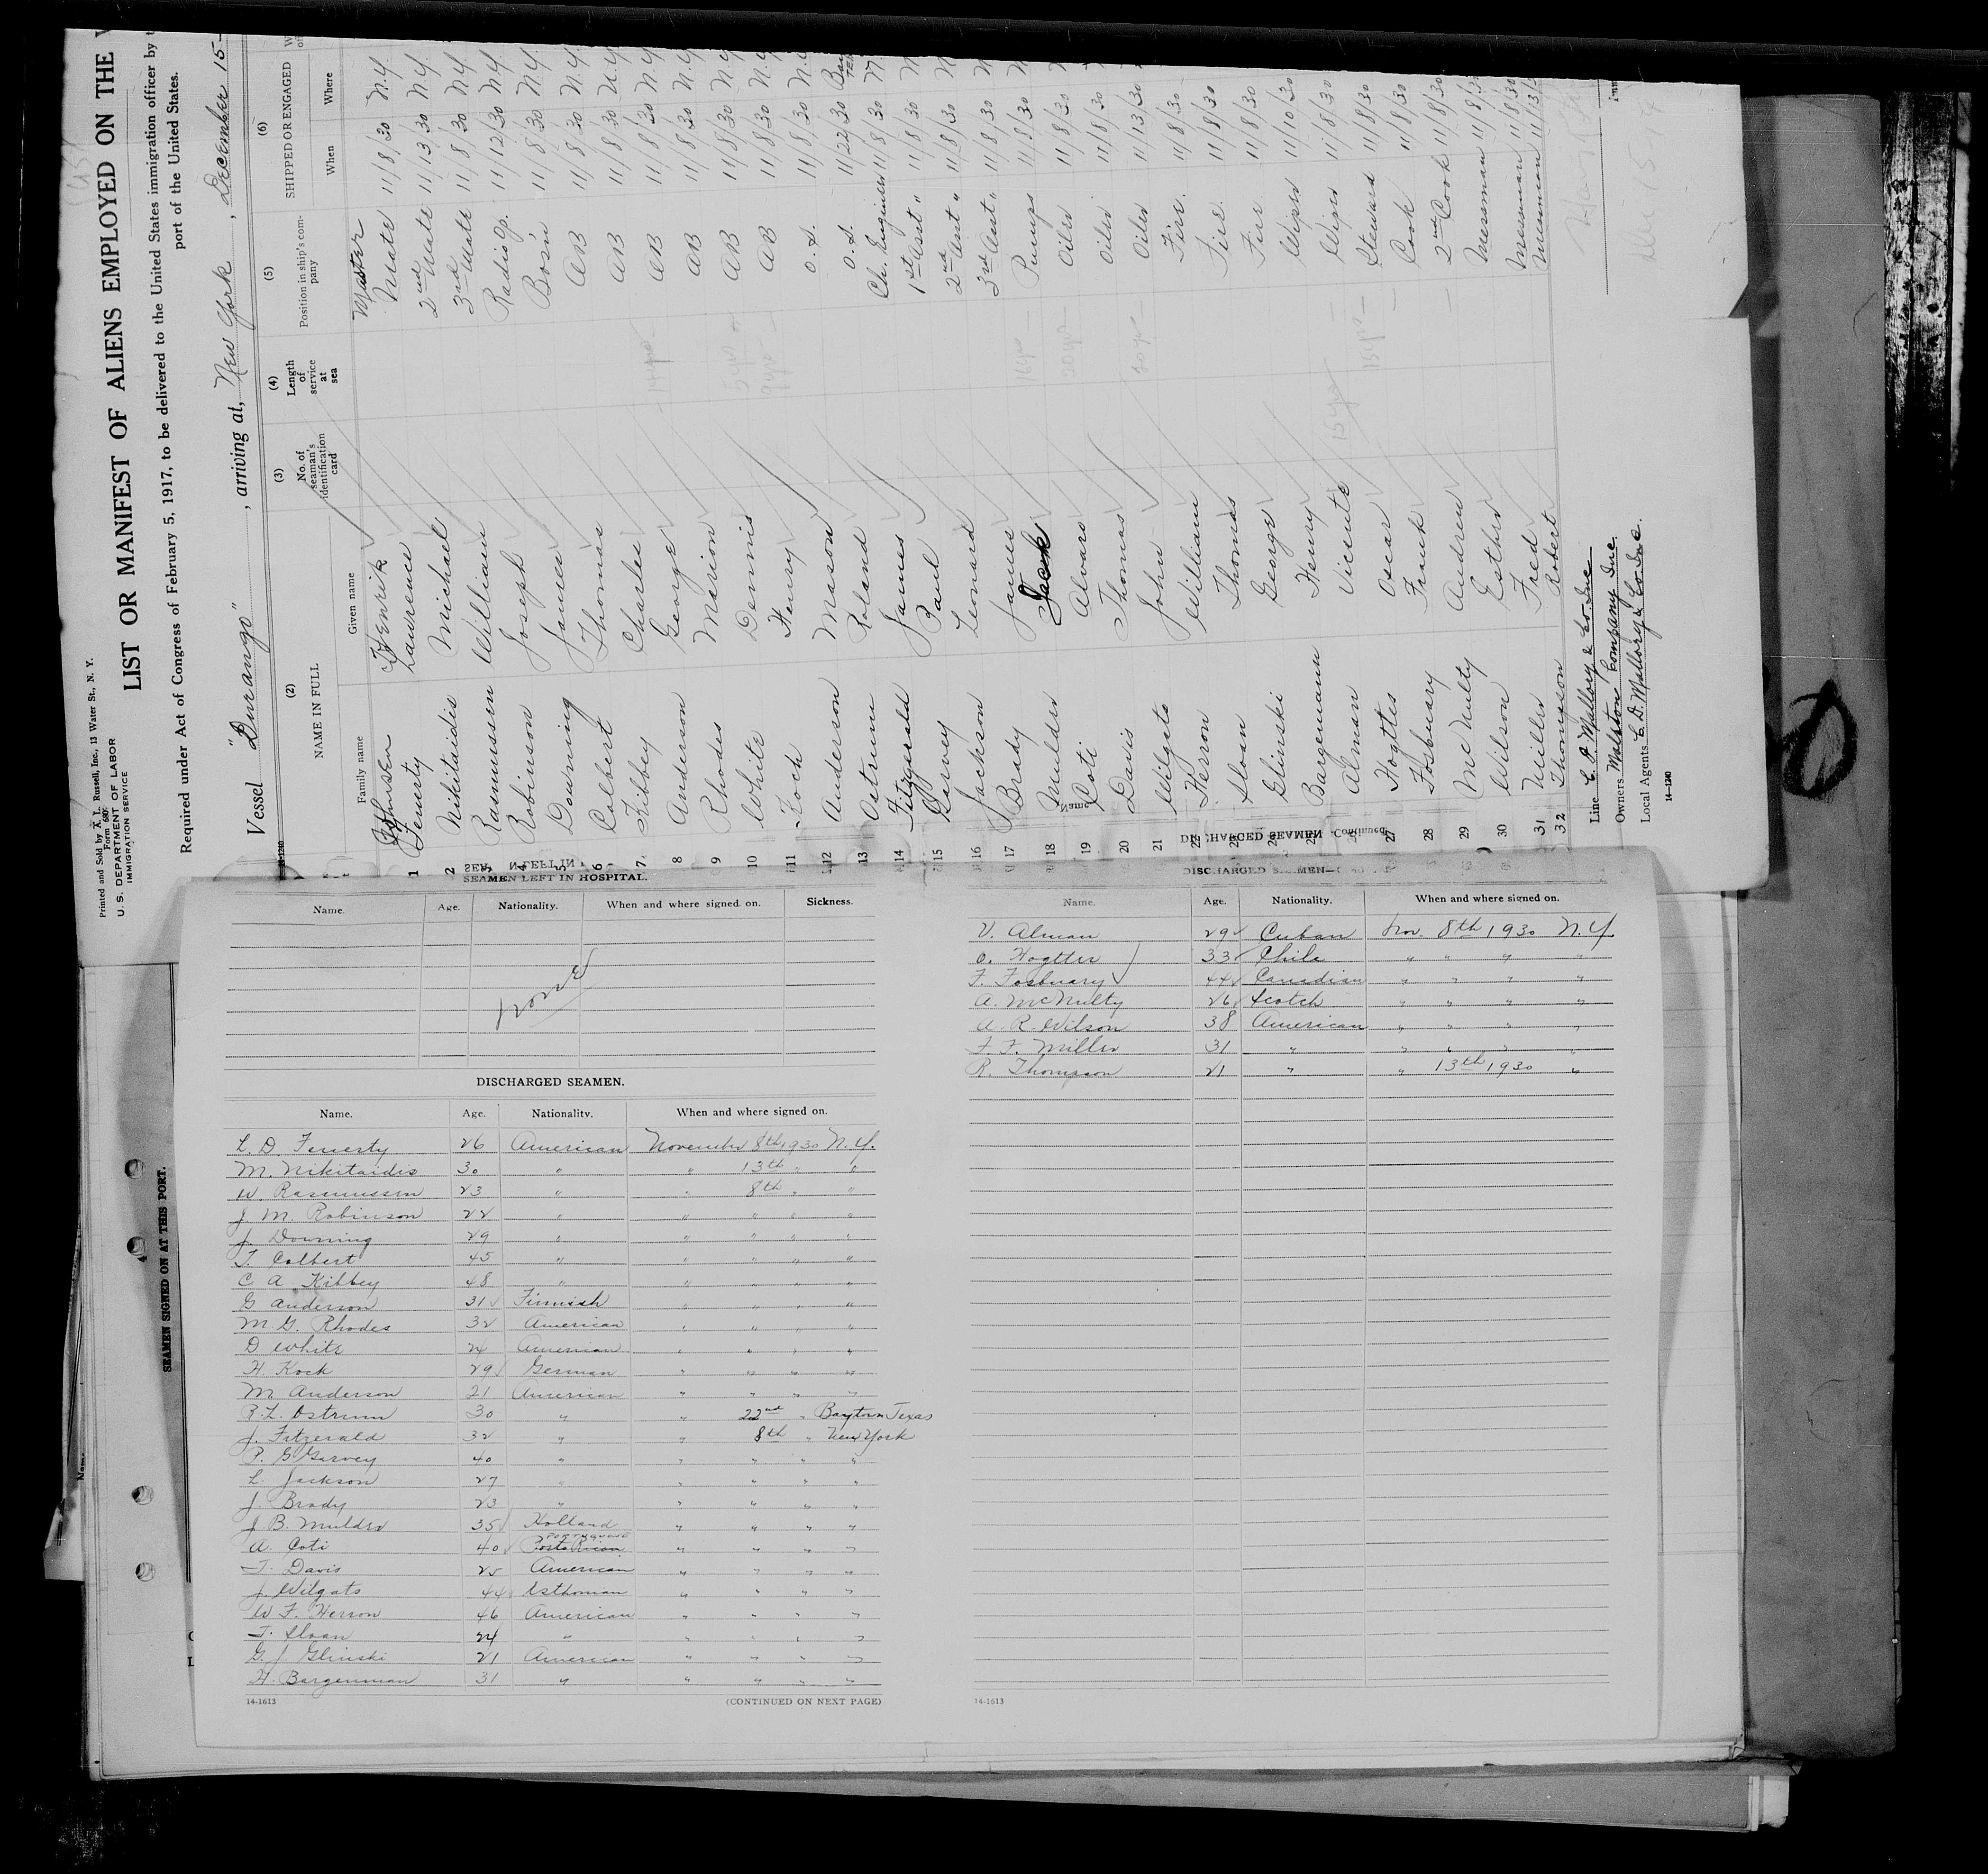 Printed and Sold by A. L. Russell, Inc., 13 Water St., N. Y.
Form 680
U. S. DEPARTMENT OF LABOR
IMMIGRATION SERVICE
LIST OR MANIFEST OF ALIENS EMPLOYED ON THE
Required under Act of Congress of February 5, 1917, to be delivered to the United States immigration officer by
port of the United States.
Vessel "Durango", arriving at, New York, December 15
(2) (3) (4) (5) (6)
NAME IN FULL No. of seaman's identification card Length of service at sea Position in ship's company SHIPPED OR ENGAGED
Family name Given name When Where
Johnsen Henrik Master
1 Fenerty Lawrence Mate 11/8/30 N.Y.
2 Nikitaidis Michael 2nd Mate 11/13/30 N.Y.
3 Rasmussen William 3rd Mate 11/8/30 N.Y.
4 Robinson Joseph Radio Op. 11/12/30 N.Y.
5 Downing James Bos'n 11/8/30 N.Y.
6 Colbert Thomas AB 11/8/30 N.Y.
7 Kibbey Charles AB 11/8/30 N.Y.
8 Anderson George AB 11/8/30 N.Y.
9 Rhodes Marion AB 11/8/30 N.Y.
10 White Dennis AB 11/8/30 N.Y.
11 Koch Henry AB 11/8/30 N.Y.
12 Anderson Mason O.S. 11/8/30 N.Y.
13 Ostrum Roland O.S. 11/22/30
14 Fitzgerald James Ch. Engineer 11/8/30
15 Garvey Paul 1st Asst " 11/8/30
16 Jackson Leonard 2nd Asst " 11/8/30
17 Brady James 3rd Asst " 11/8/30
18 Mulder Jack Pumps 11/8/30
19 Coti Alvaro Oiler 11/8/30
20 Davis Thomas Oiler 11/8/30
21 Wilgats John Oiler 11/13/30
22 Herron William Fir. 11/8/30
23 Sloan Thomas Fir. 11/8/30
24 Glinski George Fir. 11/8/30
25 Bargenmann Henry Wiper 11/10/30
Alman Vicente Wiper 11/8/30
27 Hogttes Oscar Steward 11/8/30
28 Fosbuary Frank Cook 11/8/30
29 McNulty Andrew 2nd Cook 11/8/30
30 Wilson Esther Messman 11/8/30
31 Miller Fred Messman 11/8/30
32 Thompson Robert Messman 11/13/30
Line C. D. Mallory & Co Inc
Owners Malston Company Inc
Local Agents C. D. Mallory & Co Inc.
14-1240
SEAMEN SIGNED ON AT THIS PORT.
SEAMEN LEFT IN HOSPITAL.
Name. Age. Nationality. When and where signed on. Sickness.
None
DISCHARGED SEAMEN.
Name. Age. Nationality. When and where signed on.
L. D. Fenerty 26 American November 8th 1930 N.Y.
M. Nikitaidis 30 " " 13th " "
W. Rasmussen 23 " " 8th " "
J. M. Robinson 22 " " " " "
J. Downing 29 " " " " "
T. Colbert 45 " " " " "
C A Kibbey 48 " " " " "
G Anderson 31 Finnish " " " "
M. G. Rhodes 32 American " " " "
D White 24 American " " " "
H. Kock 29 German " " " "
M Anderson 21 American " " " "
R. L. Ostrum 30 " " 22nd " Baytown Texas
J. Fitzgerald 32 " " 8th " New York
P. G Garvey 40 " " " " "
L. Jackson 27 " " " " "
J. Brady 23 " " " " "
J B. Mulder 35 Holland " " " "
A. Coti 40 Porto Rican PORTUGUESE " " " "
T. Davis 25 American " " " "
J. Wilgats 44 Esthonian " " " "
W F. Herron 46 American " " " "
T. Sloan 24 " " " " "
G. J. Glinski 21 American " " " "
H. Bargenman 31 " " " " "
14-1613 (CONTINUED ON NEXT PAGE)
DISCHARGED SEAMEN—
Name. Age. Nationality. When and where signed on.
V. Alman 29 Cuban Nov. 8th 1930 N.Y.
O. Hogttes 33 Chile " " " "
F. Fosbuary 44 Canadian " " " "
A. McNulty 26 Scotch " " " "
A. R. Wilson 38 American " " " "
F. F. Miller 31 " " " " "
R. Thompson 21 " " 13th 1930 "
14-1613